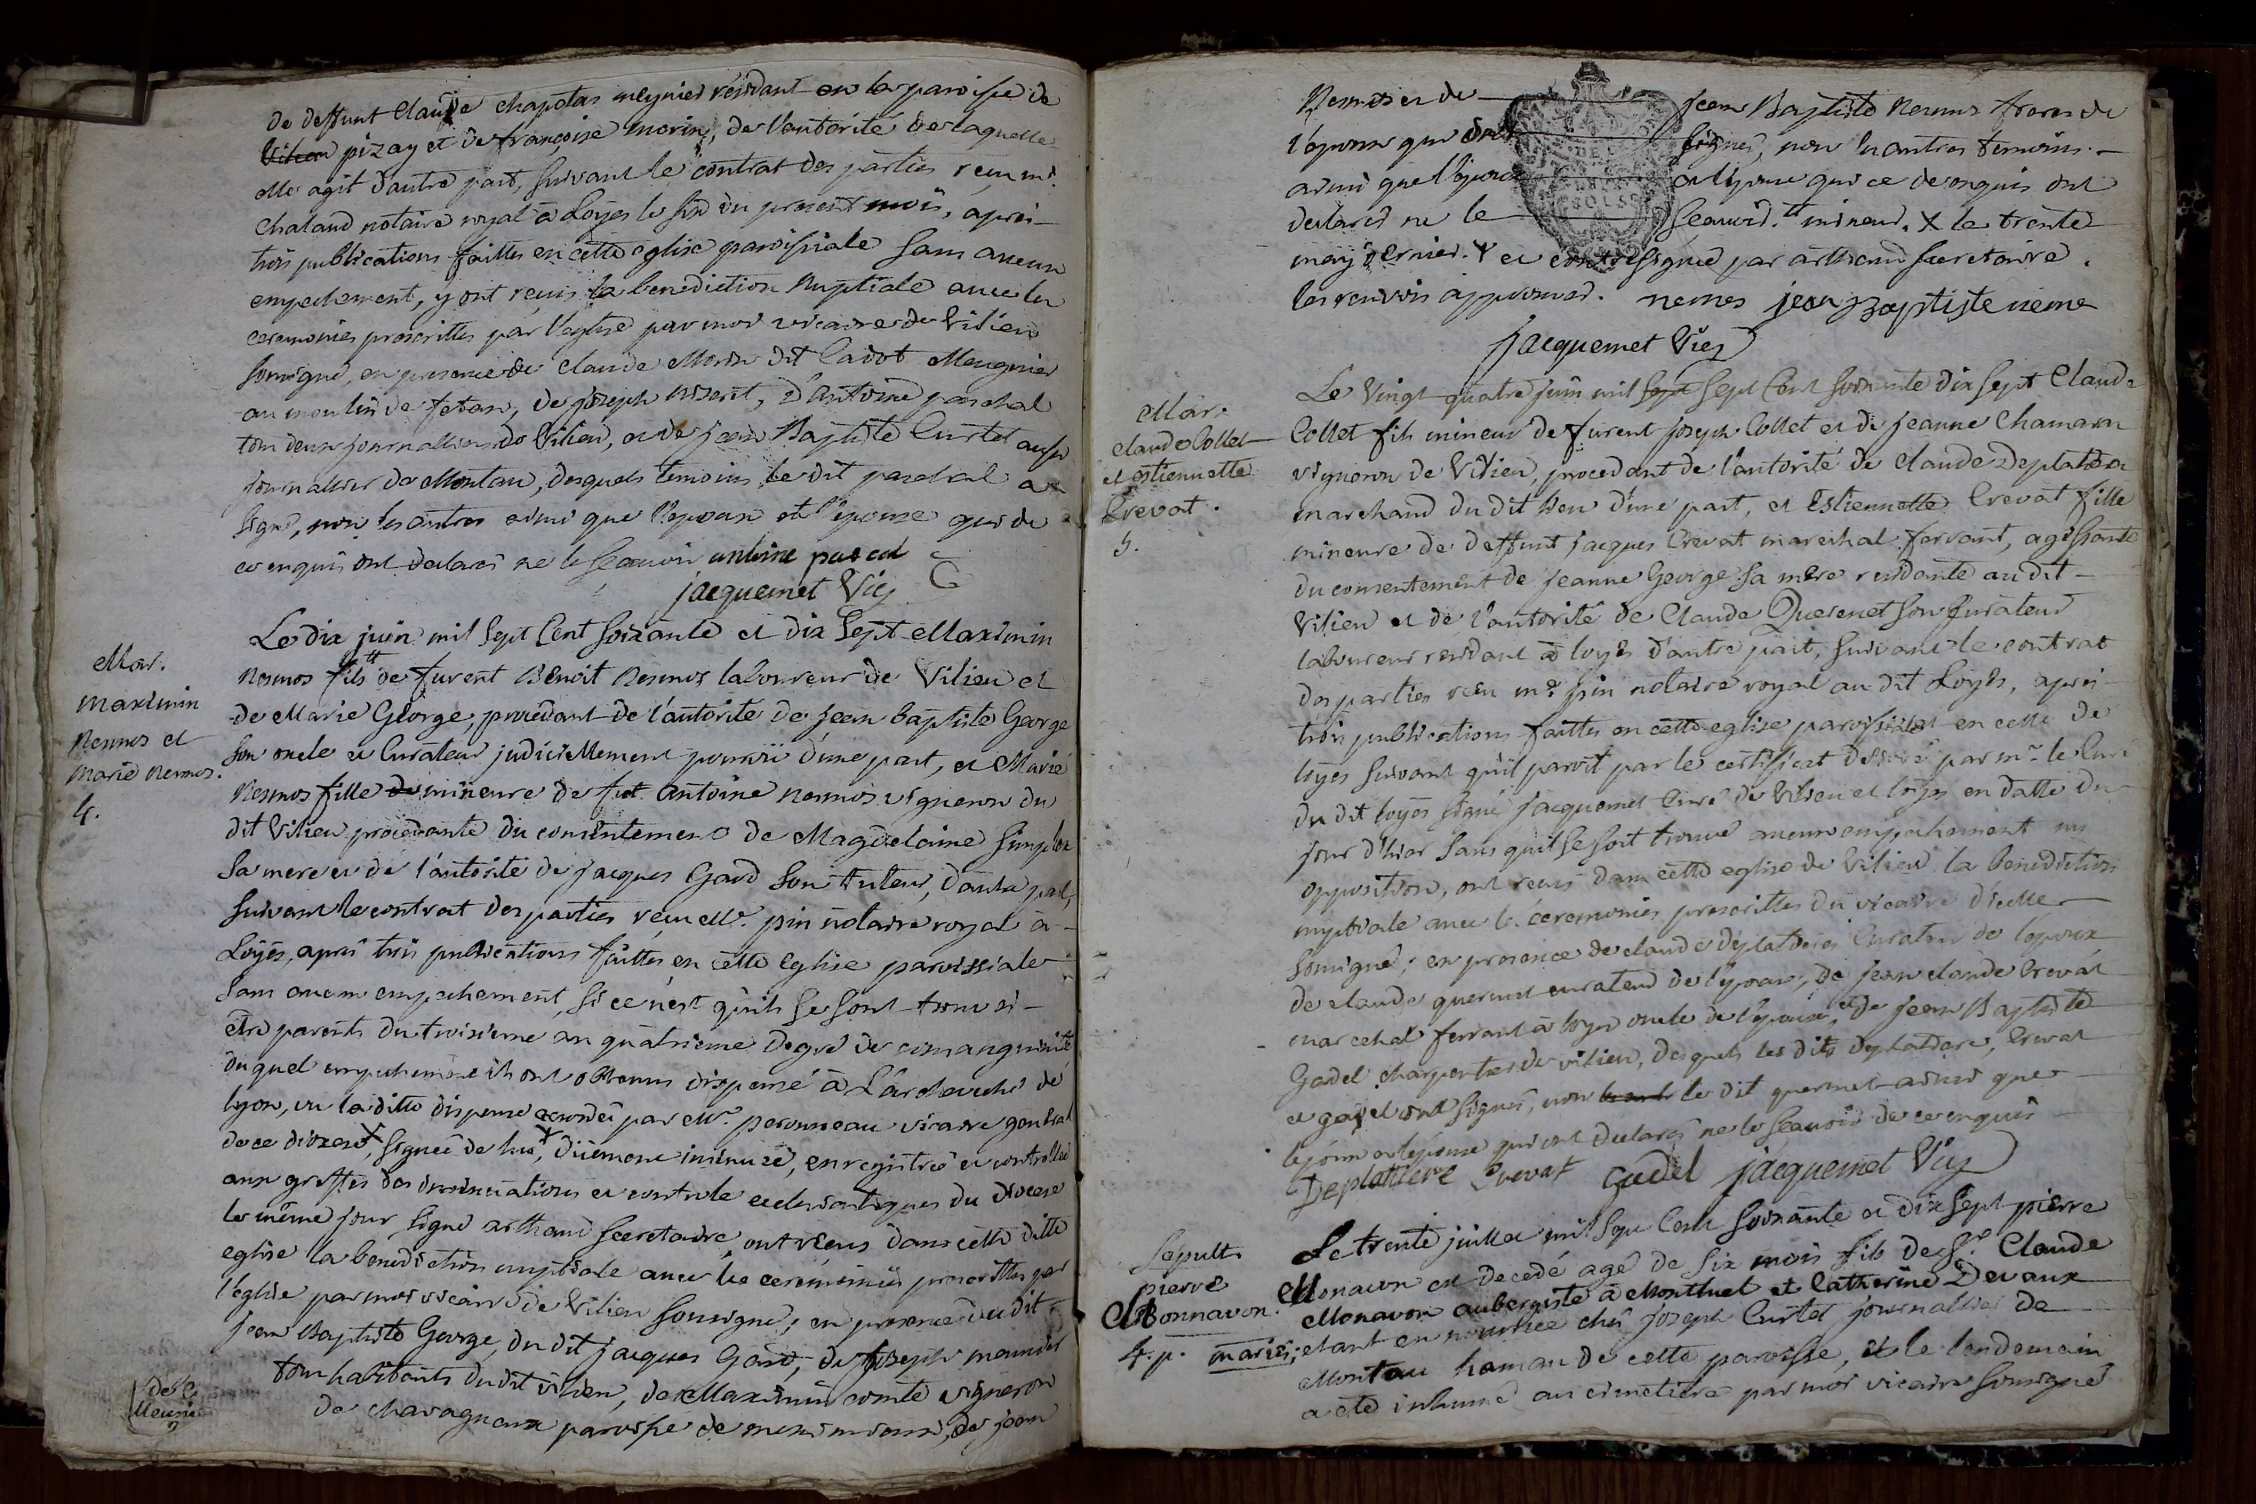 de deffunt Claude chapolas meynier résidant en la paroisse de
pizay et de françoise morin, de l'autorité de laquelle
elle agit d'autre part, suivant le contrat des parties reçu me.
chaland notaire royal à Loyes le six du present mois, après
trois publications faittes en cette eglise paroissiale sans aucun
empechement, y ont reçus la benediction nuptiale avec les
ceremonies prescrittes par l'eglise par moi vicaire de Vilieu
soussigné, en presence de claude Morin dit Cadot Meugnier
au moulin de fetan, de joseph , d'antoine paschal
tous deux journalliers de Vilieu, et de jean Baptiste Curtet aussi
journallier de Montau, desquels temoins le dit paschal a
signé, non les autres ainsi que l'epoux et l'epouse qui de
ce enquis ont declarés ne le sçauoir antoine pascal
jacquemet Vic
Le dix juin mil sept Cent soixante et dix sept Maximin
Nesmos fils tt de furent Benoit Nesmos laboureur de Vilieu et
de Marie George, procedant de l'autorité de jean baptiste George
son oncle et Curateur judiciellement pourvû d'une part, et Marie
Nesmos fille de mineure de fut antoine nesmos vigneron du
dit Vilieu procedante du consentement de Magdelaine
sa mere et de l'autorité de jacques Gard son tuteur, d'autre part,
suivant le contrat des parties reçu Me. pin notaire royal à
Loÿes, après trois publications faittes en cette eglise paroissiale
sans aucun empechement, si ce n'est qu'ils se sont trouvés
être parents du troisieme au quatrieme degré de consanguinité
duquel empechement ils ont obtenus dispense à L'archeveché de
lyon, vu la ditte dispense accordée par Mr. peronneau vicaire general
de ce diocese X, signée de lui X, duëment insinuée, enregistrée et controllée
aux greffes des insinuations et controle ecclesiastiques du diocese
le même jour signé arthaud secretaire, ont reçus dans cette ditte
eglise la benediction nuptiale avec les ceremonies prescrittes par
l'eglise par moi vicaire de Vilieu soussigné; en presence du dit
jean Baptiste George, du dit jacques Gard, de joseph mounier
tous habitants du dit vilieu, de Maximin comte vigneron
de chavagneux paroisse de , de jean
Mar.
maximin
Nesmos et
marie nesmos.
4.
Nesmos et de jean Baptiste Nesmos freres de
l'epouse qui ont signés, non les autres temoins
ainsi que l'epoux et l'epouse qui ce de enquis ont
declarés ne le sçauoir. tt mineur. X le trente
may dernier. X et contresignée par arthaud secretaire.
les renvois approuvés. nemos jean Baptiste neme
jacquemet Vic
Le Vingt quatre juin mil sept sept Cent soixante dix sept Claude
Collet fils mineur de furent joseph Collet et de jeanne Chamaron
vigneron de Vilieu, procedant de l'autorité de claude Deplatiere
marchand du dit lieu d'une part, et Estiennette Crevat fille
mineure de deffunt jacques Crevat marechal ferrant, agissante
du consentement de jeanne George sa mère residante au dit
Vilieu et de l'autorité de Claude Querenet son Curateur
laboureur residant à loyës d'autre part, suivant le contrat
des parties reçu me. pin notaire royal au dit Loyës, après
trois publications faittes en cette eglise paroissiale et en celle de
loyes suivant qu'il paroit par le certificat par mr. le Curé
du dit loyes signé jacquemet Curé de Vilieu et loyes en datte du
jour d'hier sans qu'il se soit trouvé aucun empechement ni
opposition, ont reçus dans cette eglise de Vilieu la benediction
nuptiale avec les ceremonies prescrittes du vicaire d'icelle
soussigné; en presence de claude deplatiere Curateur de l'epoux
de claude querenet curateur de l'epouse, de jean claude Crevat
marechal ferrant à loyes oncle de l'epouse, et de jean Baptiste
Gadel charpentier de vilieu, desquels les dits deplatiere, Crevat
et gadel ont signés, non le dit querenet ainsi que
l'epoux et l'epouse qui ont declarés ne le sçauoir de ce enquis
Deplatiere Crevat Gadel jacquemet Vic
Le trente juillet mil sept Cent soixante et dix sept pierre
Monavon est decedé agé de six mois fils de Sr. Claude
Monavon aubergiste à Montluel et Catherine Devaux
mariés; etant en nourrice chés joseph Curtet journallier de
Montau hamau de cette paroisse, et le lendemain
a eté inhumé au cimetiere par moi vicaire soussigné
Mar.
claude Collet
et estiennette
Crevat.
5.
Sepult.
pierre
Monnavon.
4. p.